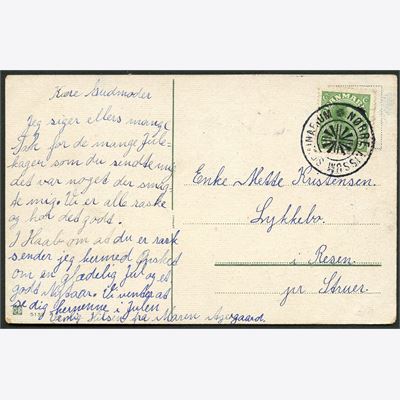 Kære Gudmoder
Jeg siger ellers mange
Tak for de mange Jule-
kager som du sendte mig
det var noget der smag-
te mig. Vi er alle raske
og har det godt.
I Haab om at du er rask
sender jeg hermed Ønsket
om en glædelig Jul og et
godt Nytaar. Vi venter at
se dig herhenne i Julen
Venlig Hilsen fra Maren Agergaard.
DANMARK
NØRRE NISSUM
SEMINARIUM
Enke Mette Kristensen
Lykkebo.
i Resen
pr Struer.